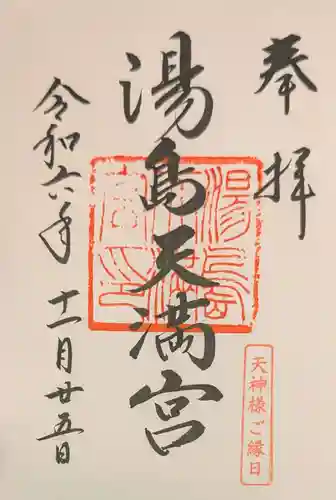 奉拝
湯島天満宮
天神様ご縁日
令和六年 十一月廿五日